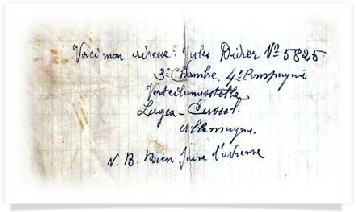 Voici mon adresse: Jules Didier No 5825
3e Chambre, 4e Compagnie
Lager - Cassel
Allemagne.
N. B. Bien faire l'adresse